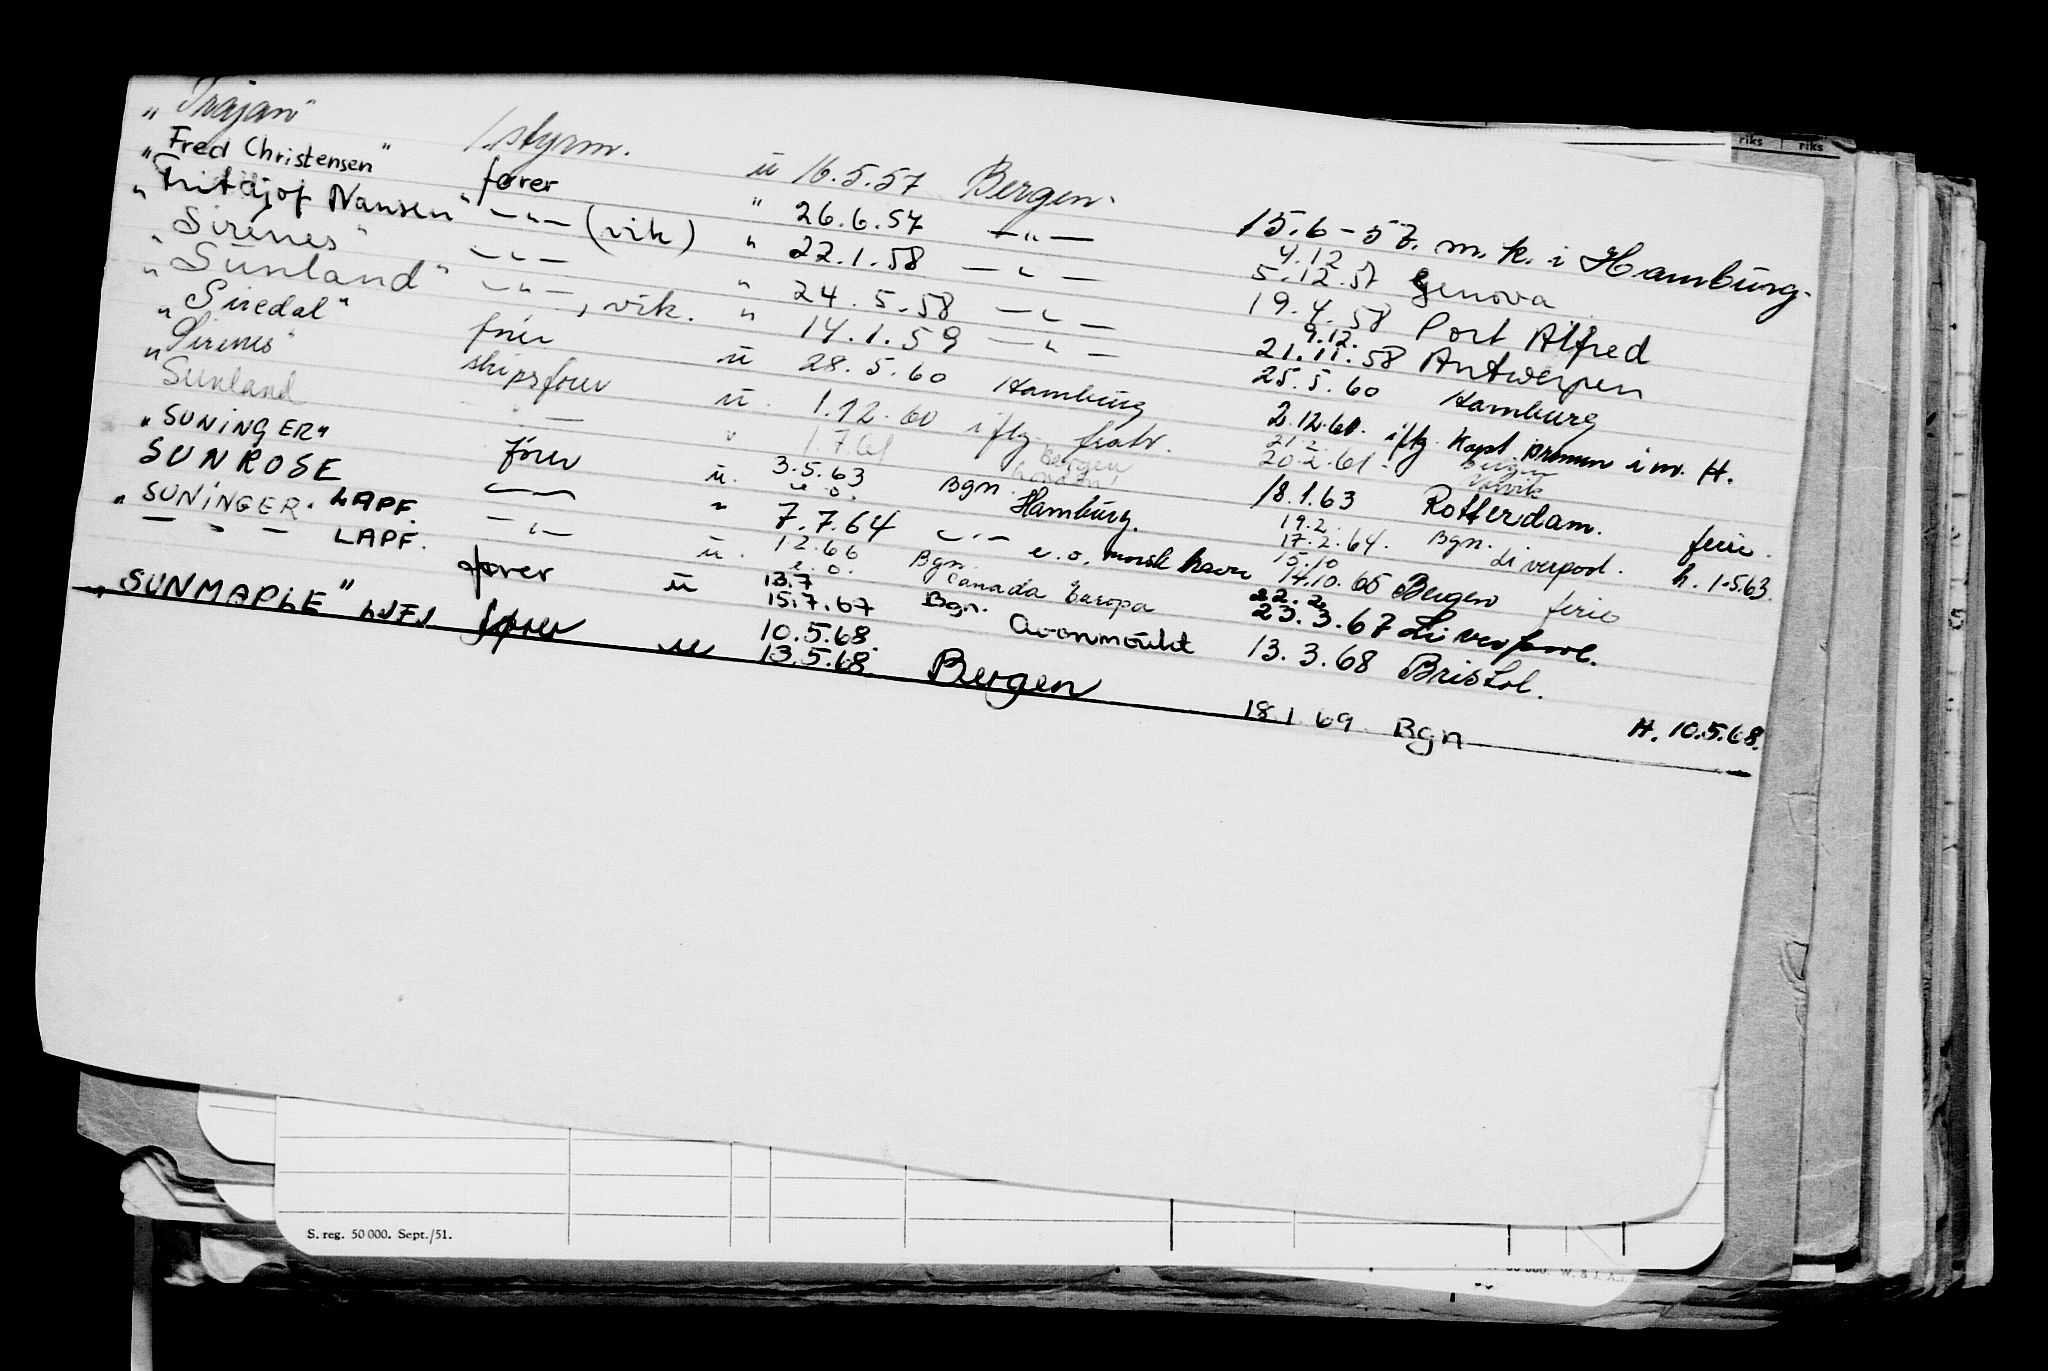 „Trajan" 1. styrm. ü 16.5.57 Bergen. 15.6-57. m.k. i Hamburg.
„Fred Christensen" fører " 26.6.57 —"— 4.12 5.12.57 Genova
„Fritdjof Nansen" —"— (vik) " 22.1.58 —"— 19.4.58 Port Alfred
„Sirenes" —"— " 24.5.58 —"— 9.12. 21.11.58 Antwerpen
„Sunland" —"—, vik. " 14.1.59 —"— 25.5.60 Hamburg
„Siredal" fører ü 28.5.60 Hamburg 2.12.60. iflg. Kapt. i m. H.
„Sirenes" skipsfører ü. 1.12.60 iflg. 20.2.61 Bergen
Sunland — " 1.7.61 Bergen 18.1.63 Rotterdam. ferie.
„SUNINGER" fører ü. 3.5.63 Bgn. 19.2. 17.2.64. Bgn. Liverpool. h. 1.5.63.
SUNROSE — " e.o. 7.7.64 Hamburg. 15.10 14.10.65 Bergen ferie
„SUNINGER. LAPF. —"— ü. 1.2.66 e.o. Bgn. e.o. norsk havn 22.2 23.3.67 Liverpool.
— " — LAPF. fører ü 13.7 15.7.67 Bgn. Canada Europa Avonmouht 13.3.68 Bristol.
„SUNMAPLE" LJFJ fører ü 10.5.68. 13.5.68. Bergen 18.1.69. Bgn H. 10.5.68.
riks riks
S. reg. 50 000. Sept./51.